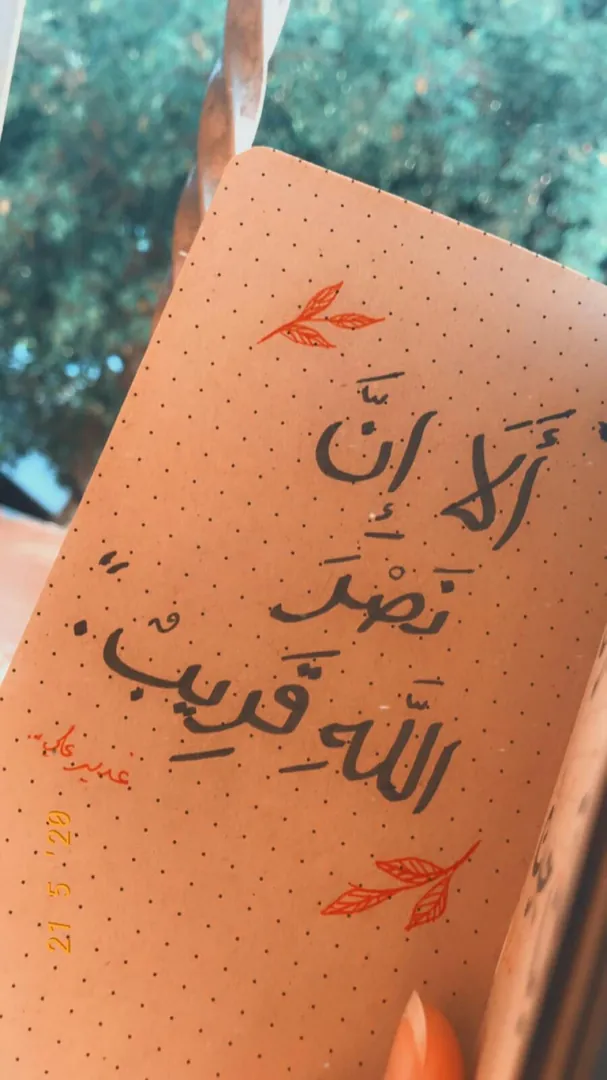 أَلَا إِنَّ
نَصْرَ
اللَّهِ قَرِيبْ."
غدير علي..
21 5 '20